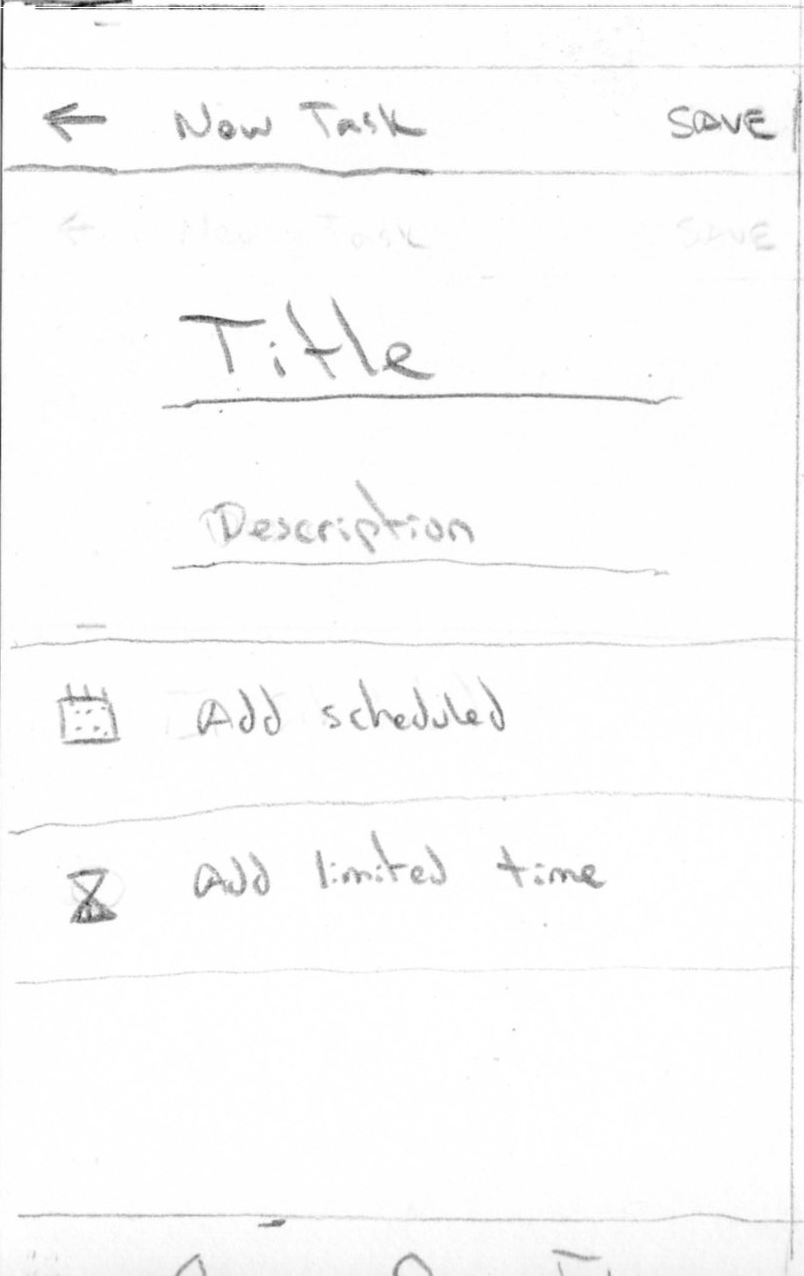 New Task SAVE
New Task SAVE
Title
Description
Add scheduled
Add limited time